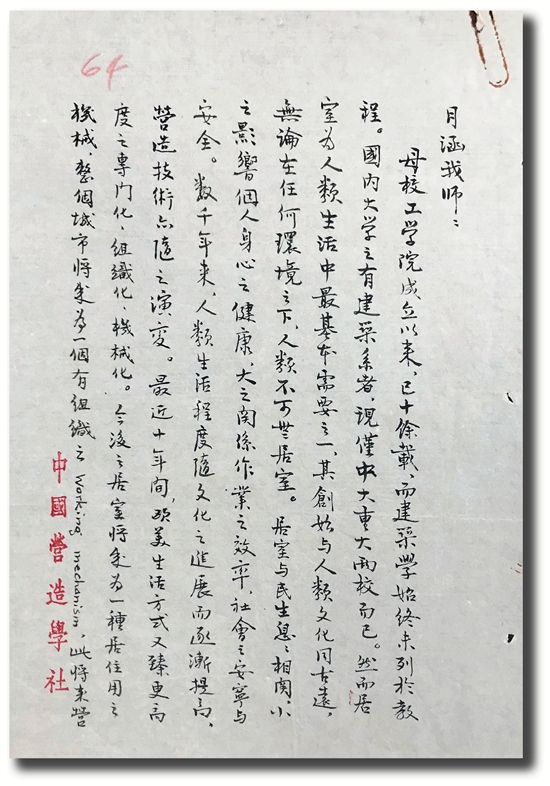 64
月涵我师：
母校工学院成立以来，已十餘載，而建築学始终未列於教
程。國内大学之有建築系者，現僅中大重大兩校而已。然而居
室为人類生活中最基本需要之一，其創始与人類文化同古遠，
無論在任何環境之下，人類不可无居室。居室与民生息息相関，小
之影響個人身心之健康，大之関係作業之效率，社會之安寧与
安全。数千年来，人類生活程度隨文化之進展而逐漸提高，
營造技術亦隨之演变。最近十年间，欧美生活方式又臻更高
度之專门化，組織化，機械化。今後之居室將成为一種居住用之
機械，整個城市將成为一個有組織之 Working mechanism，此將来營
中國營造學社